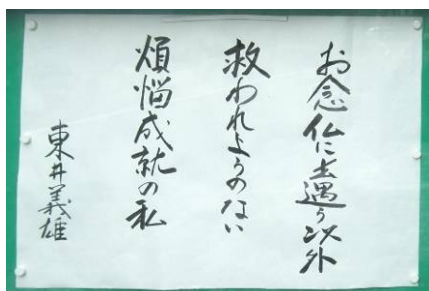 お念仏に出遇う以外
救われようのない
煩悩成就の私
東井義雄